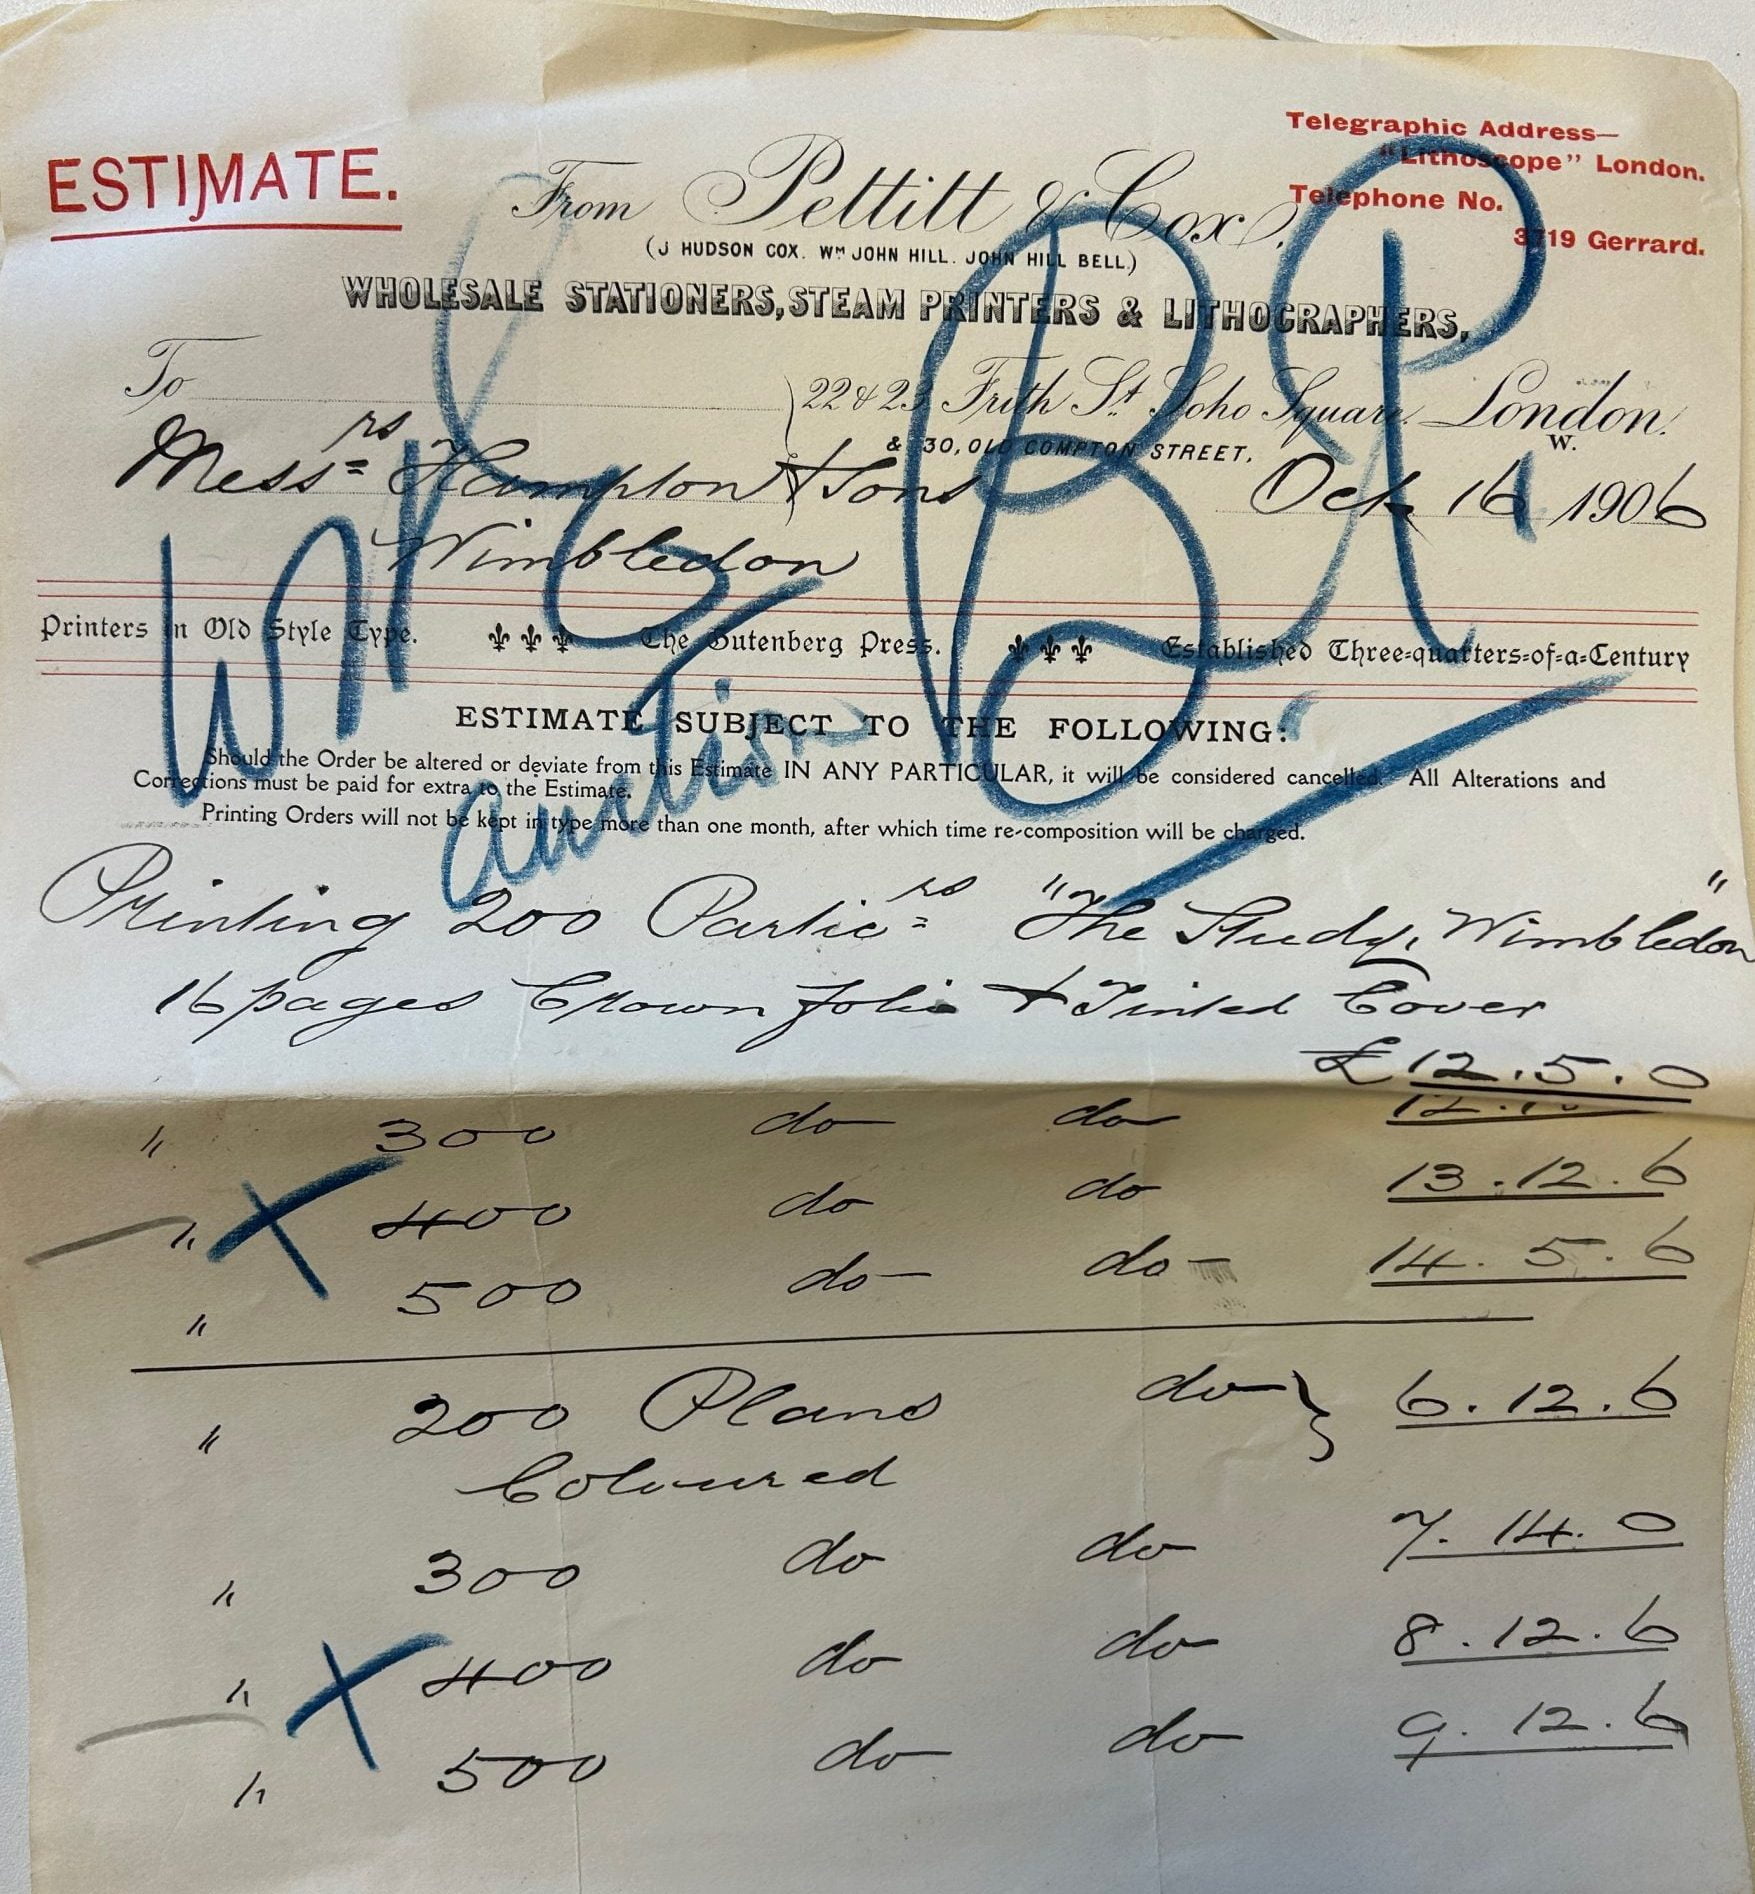 ESTIMATE.
Telegraphic Address—
"Lithoscope" London.
Telephone No.
3719 Gerrard.
From Pettitt & Cox,
(J HUDSON COX. Wm JOHN HILL. JOHN HILL BELL.)
WHOLESALE STATIONERS, STEAM PRINTERS & LITHOGRAPHERS,
To
22 & 23 Frith St. Soho Square. London.
& 30, OLD COMPTON STREET, W.
Messrs Hampton & Sons
Oct 16 1906
Wimbledon
Printers in Old Style Type. The Gutenberg Press. Established Three-quarters-of-a-Century
ESTIMATE SUBJECT TO THE FOLLOWING:
Should the Order be altered or deviate from this Estimate IN ANY PARTICULAR, it will be considered cancelled. All Alterations and
Corrections must be paid for extra to the Estimate.
Printing Orders will not be kept in type more than one month, after which time re-composition will be charged.
auction
Printing 200 Particrs "The Study, Wimbledon"
16 pages Crown folio & Tinted Cover
£12.5.0
" 300 do do
" X 400 do do 13.12.6
" 500 do do 14.5.6
" 200 Plans do } 6.12.6
Coloured
" 300 do do 7.14.0
" X 400 do do 8.12.6
" 500 do do 9.12.6